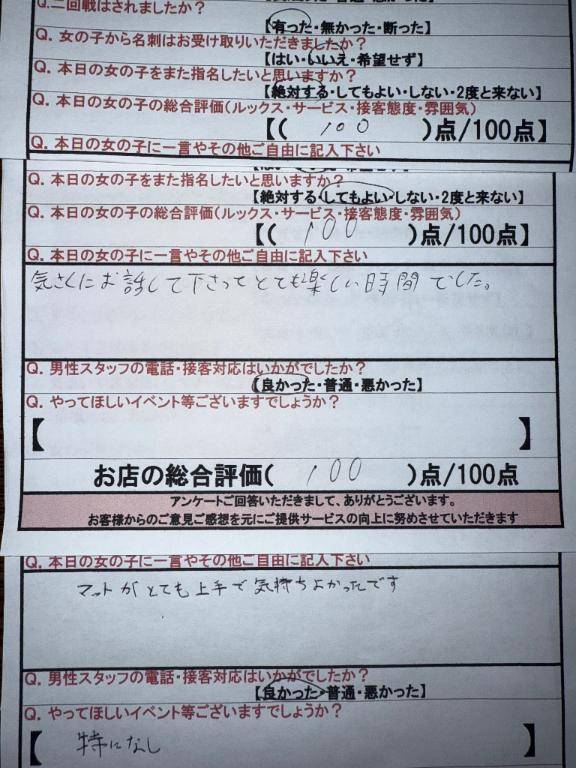 Q.二回戦はされましたか？
【有った・無かった・断った】
Q. 女の子から名刺はお受け取りいただきましたか？
【はい・いいえ・希望せず】
Q. 本日の女の子をまた指名したいと思いますか？
【絶対する・してもよい・しない・2度と来ない】
Q. 本日の女の子の総合評価(ルックス・サービス・接客態度・雰囲気)
【( 100 )点/100点】
Q. 本日の女の子に一言やその他ご自由に記入下さい
Q. 本日の女の子をまた指名したいと思いますか？
【絶対する・してもよい・しない・2度と来ない】
Q. 本日の女の子の総合評価(ルックス・サービス・接客態度・雰囲気)
【( 100 )点/100点】
Q. 本日の女の子に一言やその他ご自由に記入下さい
気さくにお話して下さってとても楽しい時間でした。
Q. 男性スタッフの電話・接客対応はいかがでしたか？
【良かった・普通・悪かった】
Q. やってほしいイベント等ございますでしょうか？
【 】
お店の総合評価( 100 )点/100点
アンケートご回答いただきまして、ありがとうございます。
お客様からのご意見ご感想を元にご提供サービスの向上に努めさせていただきます
Q. 本日の女の子に一言やその他ご自由に記入下さい
マットがとても上手で気持ちよかったです
Q. 男性スタッフの電話・接客対応はいかがでしたか？
【良かった・普通・悪かった】
Q. やってほしいイベント等ございますでしょうか？
【 特になし 】